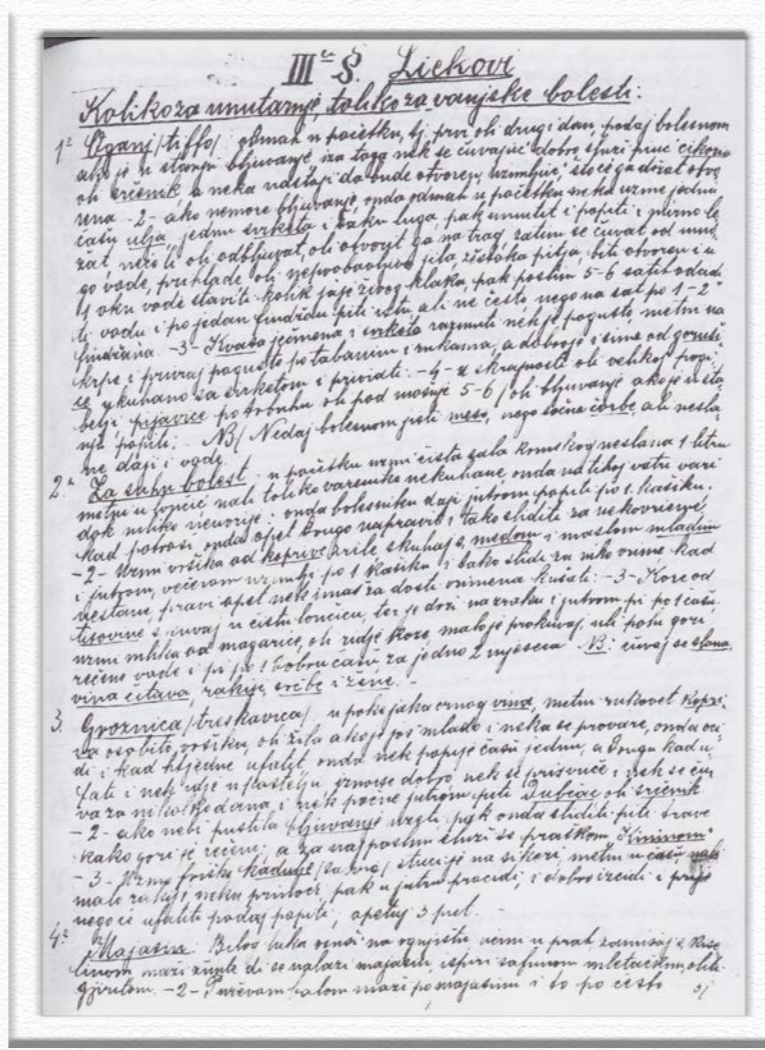 III ć S. Liekovi
Kolikoza unutarnje, tolikoza vanjske bolesti:
1º Oganj (tiffo) odmah u početku, tj. prvi oli drugi dan, podaj bolesnom
ako je u stanju bljuvanje iza toga nek se čuvajuć dobro služi pruć
oli srčenik, a neka nastoji da bude otvoren, što će ga držat otvo
rena -2- ako nemore bljuvanje, onda odmah u početku neka uzme jednu
čašu ulja, jednu svrketa i šaku luga, pak umutit i popiti i mirno le
žat, neće li oli odbljuvat, oli otvorit ga na trag zatim se čuvat od mno
go vode, prihlade oli jila, žestoka pitja, biti otvoren i u
1 oku vode staviti kolik jaje živog klaka, pak poslin 5-6 satih odad
ti vodu i po jedan findžan piti istu ali ne često, nego na sat po 1-2
findžana. -3- Kvasa ječmena i svrketa razmuti nek je pogusto metni na
krpe i privraj pogusto po tabanim i rukama, a dobro je i sime od goruši
ce ukuhano sa svrketom i priviati. -4- u skrajnosti oli velikoj pogi
belji pijavice po trbuhu oli pod mošnje 5-6, oli bljuvanje ako je u sta
nju popiti. NB/ Nedaj bolesnom jisti meso, nego sočne čorbe, ali nesla
ne daji i vode.
2.º Za suhu bolest u početku uzmi čista sala krmskog neslana 1 litru
metni u lončić nali toliko varenike nekuhane onda na tihoj vatri vari
dok mliko neuvrije. onda bolesniku daji jutrom popiti po 1. kašiku.
kad potroši onda opet drugo napravi i tako sliditi za
-2- Uzmi vršika od koprive žile skuhaj s medom i maslom mladim
i jutrom, večerom uzimlji po 1 kašiku i tako slidi za niko vrime kad
nestane, pravi opet nek imaš za dosti vrimena kušati: -3- Kore od
tisovine s čuvaj u čistu lončiću, ter je drži na zraku i jutrom pi po 1 čašu
uzmi mlika od magarice, oli ridje koze, malo je prokuvaj, uli polu gori
rečene vode i pi po 1 dobru čašu za jedno 2 mjeseca NB: čuvaj se slana,
vina čitava, rakije, srčbe i žene. -
3. Groznica (treskavica) u poke jaka crnog vina, metni rukovet kopri
va osobito vršika, oli žila ako je još mlado i neka se provare, onda oci
di i kad htjedne ufatit, onda nek popije čašu jednu, a drugu kad u
fati i nek idje u postelju, dobro nek se i nek se ču
va za nikoliko dana, i nek počne jutrom piti Dubčac oli srčenik
-2- ako nebi pustila bljuvanje uzeti, pak onda sliditi piti trave
kako gori je rečeno, a za naj poslin služi se praškom "Kininom"
-3- Uzmi friške kadulje stuci je na sikiri, metni u čašu nali
malo rakije i neka prinoći, pak u jutro procidi, i dobro izcidi i prije
nego će ufatiti podaj popiti, opetuj 3 put.
4.º Majasin: Bilog luka osuši na ognjištu, učini u prah zamisaj s kise
linom mazi žunte di se nalazi majasin, ispiri safunom mletačkim, oli
-2- Purževom balom mazi po majasinu i to po često